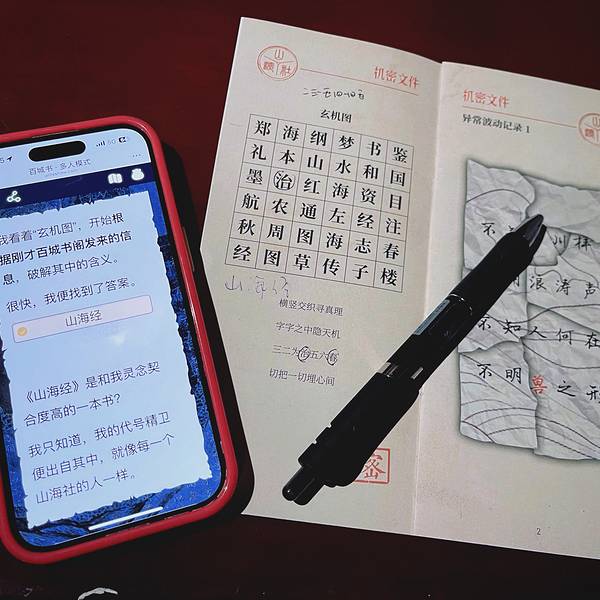 百城书 · 多人模式
我看着“玄机图”，开始根
据刚才百城书阁发来的信
息，破解其中的含义。
很快，我便找到了答案。
山海经
《山海经》是和我灵念契
合度高的一本书？
我只知道，我的代号精卫
便出自其中，就像每一个
山海社的人一样。
机密文件
玄机图
郑海纲梦书鉴
礼本山水和国
墨治红海资目
航农通左经注
秋周图海志春
经图草传子楼
山海经
横竖交织寻真理
字字之中隐天机
三二为治五六春
切把一切埋心间
密
机密文件
异常波动记录 1
不 川
浪涛声
不知人何在
不明兽之形
2